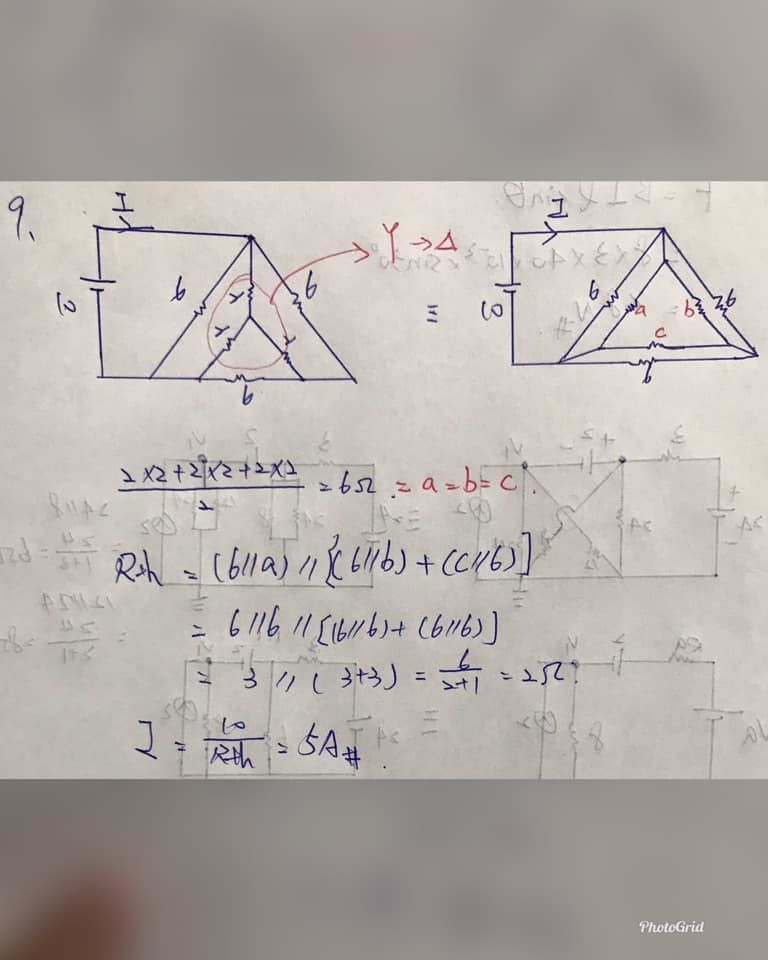 9.
I
10
6
6
2
2
2
6
Y → Δ
≡
I
10
6
a
b
6
c
6
2×2+2×2+2×2 / 2 = 6Ω = a = b = c.
Rth = (6//a) // [(6//b) + (c//6)]
= 6//6 // [(6//6) + (6//6)]
= 3 // (3+3) = 6/2+1 = 2Ω
I = 10/Rth = 5A#
PhotoGrid